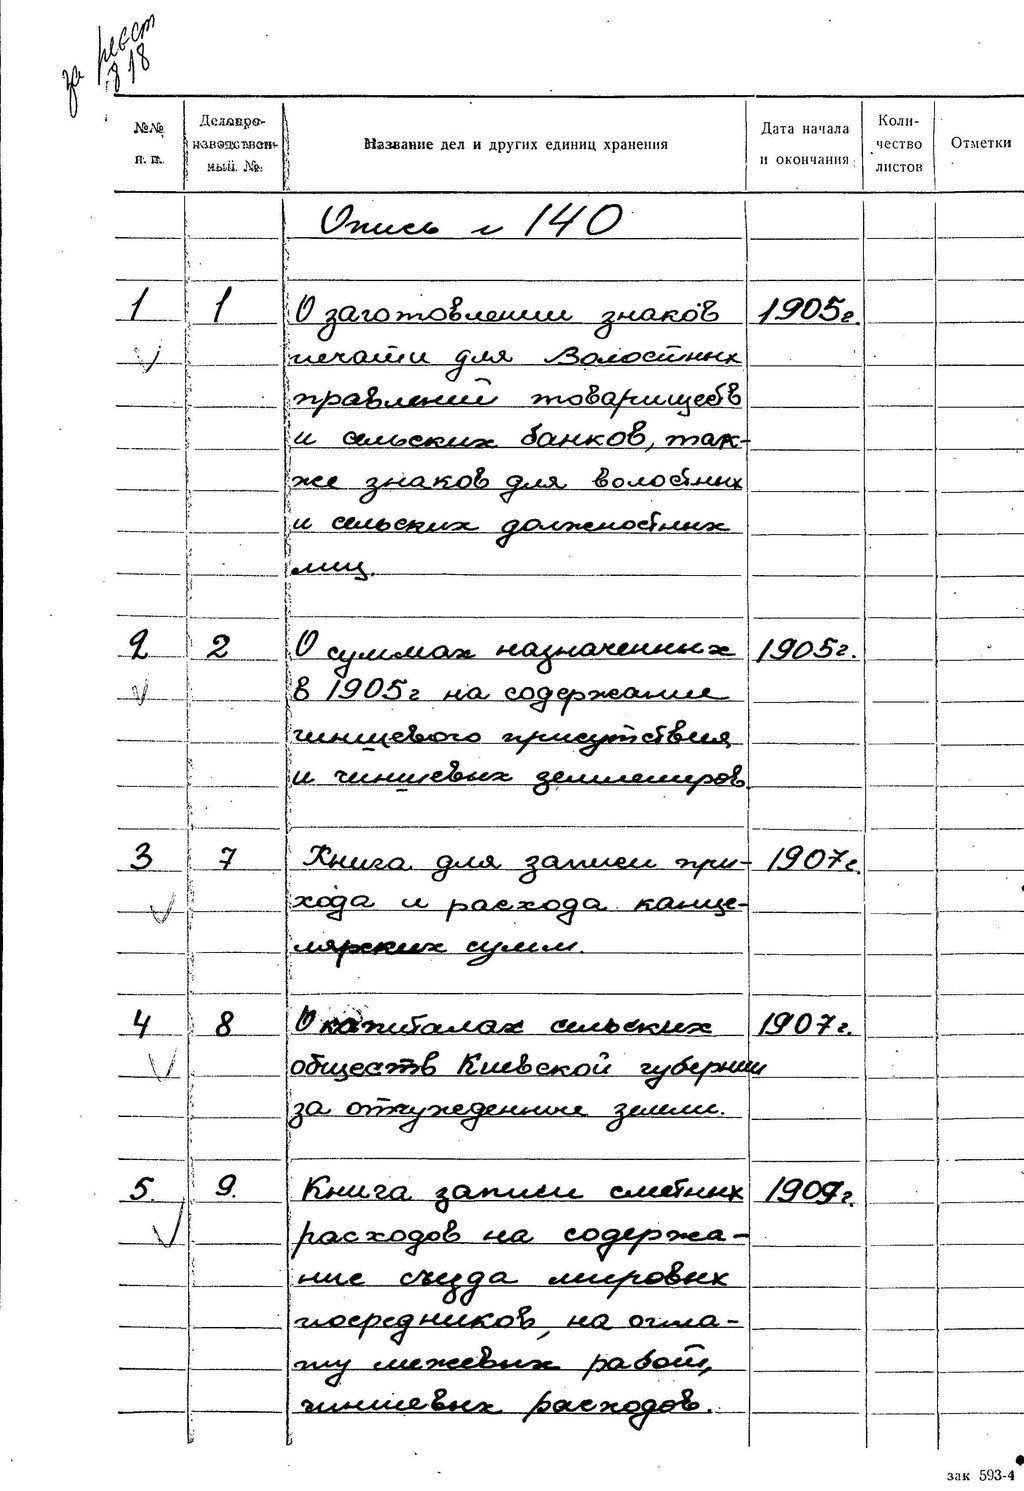 за реест
818
№№ п. п. Делопроизводственный № Название дел и других единиц хранения Дата начала и окончания Количество листов Отметки
Опись № 140
1 1 О заготовлении знаков 1905г.
печати для Волостных
правлений товариществ
и сельских банков, так-
же знаков для волостных
и сельских должностных
лиц.
2 2 О суммах назначенных 1905г.
в 1905г на содержание
чиншевого присутствия
и чиншевых землемеров.
3 7 Книга для записи при- 1907г.
хода и расхода канце-
лярских сумм.
4 8 О капиталах сельских 1907г.
обществ Киевской губернии
за отчужденные земли.
5. 9. Книга записи сметных 1909г.
расходов на содержа-
ние съезда мировых
посредников, на опла-
ту межевых работ,
чиншевых расходов.
зак 593-4